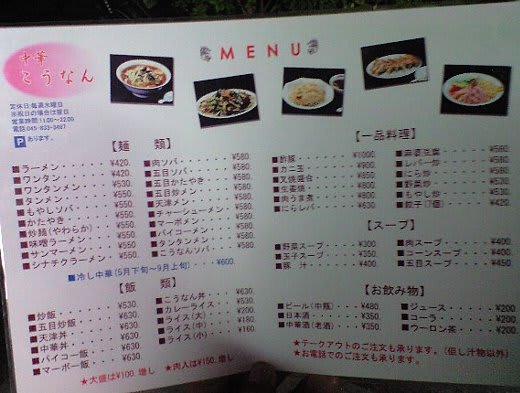 中華
こうなん
MENU
定休日:毎週水曜日
※祝日の場合は翌日
営業時間11:00〜22:00
電話045-833-9487
P あります。
【麺 類】
■ラーメン・・・・・¥420.
■ワンタン・・・・・¥420.
■ワンタンメン・・・¥530.
■タンメン・・・・・¥550.
■もやしソバ・・・・¥550.
■かたやき・・・・・¥550.
■炒麺(やわらか)・・¥550.
■味噌ラーメン・・・¥550.
■サンマーメン・・・¥550.
■シナチクラーメン・・¥550.
■肉ソバ・・・・・¥580.
■五目ソバ・・・・¥580.
■五目かたやき・・¥580.
■五目炒メン・・・¥580.
■天津メン・・・・¥580.
■チャーシューメン・・¥580.
■マーボメン・・・¥580.
■パイコーメン・・¥580.
■タンタンメン・・¥580.
■こうなんソバ・・¥580.
■冷し中華(5月下旬〜9月上旬)・・・¥600.
【飯 類】
■炒飯・・・・・¥530.
■五目炒飯・・・¥630.
■中華丼・・・・¥630.
■天津丼・・・・¥630.
■パイコー飯・・¥630.
■マーボー飯・・¥630.
■こうなん丼・・¥630.
■カレーライス・・¥530.
■ライス(大)・・¥200.
■ライス(中)・・¥180.
■ライス(小)・・¥160.
★大盛は¥100.増し ★肉入は¥150.増し
【一品料理】
■酢豚・・・・・¥1000
■カニ玉・・・・¥900.
■叉焼盛合・・・¥900.
■生姜焼・・・・¥900.
■肉うま煮・・・¥900.
■にらレバ・・・¥580.
■麻婆豆腐・・・¥580.
■レバー炒・・・¥580.
■にら炒・・・・¥580.
■野菜炒・・・・¥530.
■もやし炒・・・¥530.
■餃子(7個)・・・¥420.
【スープ】
■野菜スープ・・・¥300
■玉子スープ・・・¥350.
■豚汁・・・・・¥400.
■肉スープ・・・・¥400.
■コーンスープ・・¥400.
■五目スープ・・・¥450.
【お飲み物】
■ビール(中瓶)・・¥480.
■日本酒・・・・・¥350.
■中華酒(老酒)・・¥350.
■ジュース・・・・¥200
■コーラ・・・・・¥200
■ウーロン茶・・・¥200
★テークアウトのご注文も承ります。(但し汁物以外)
★お電話でのご注文も承ります。